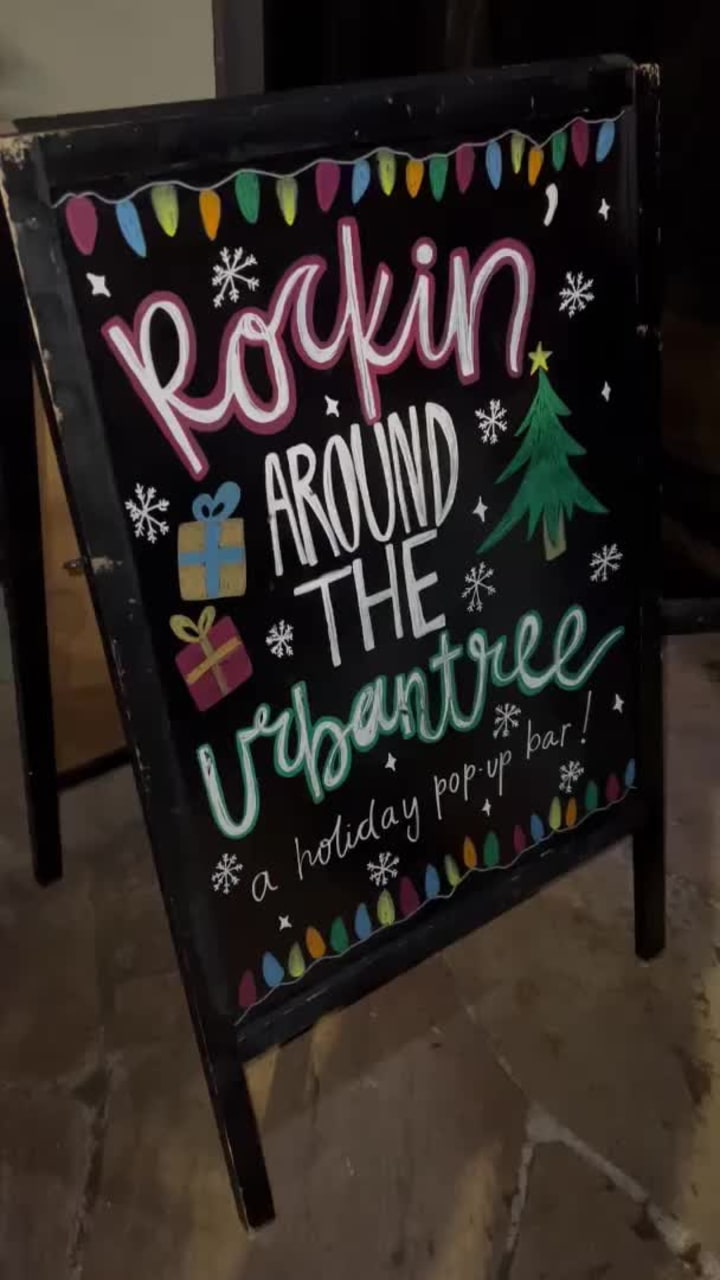 Rockin'
AROUND
THE
Urbantree
a holiday pop-up bar!